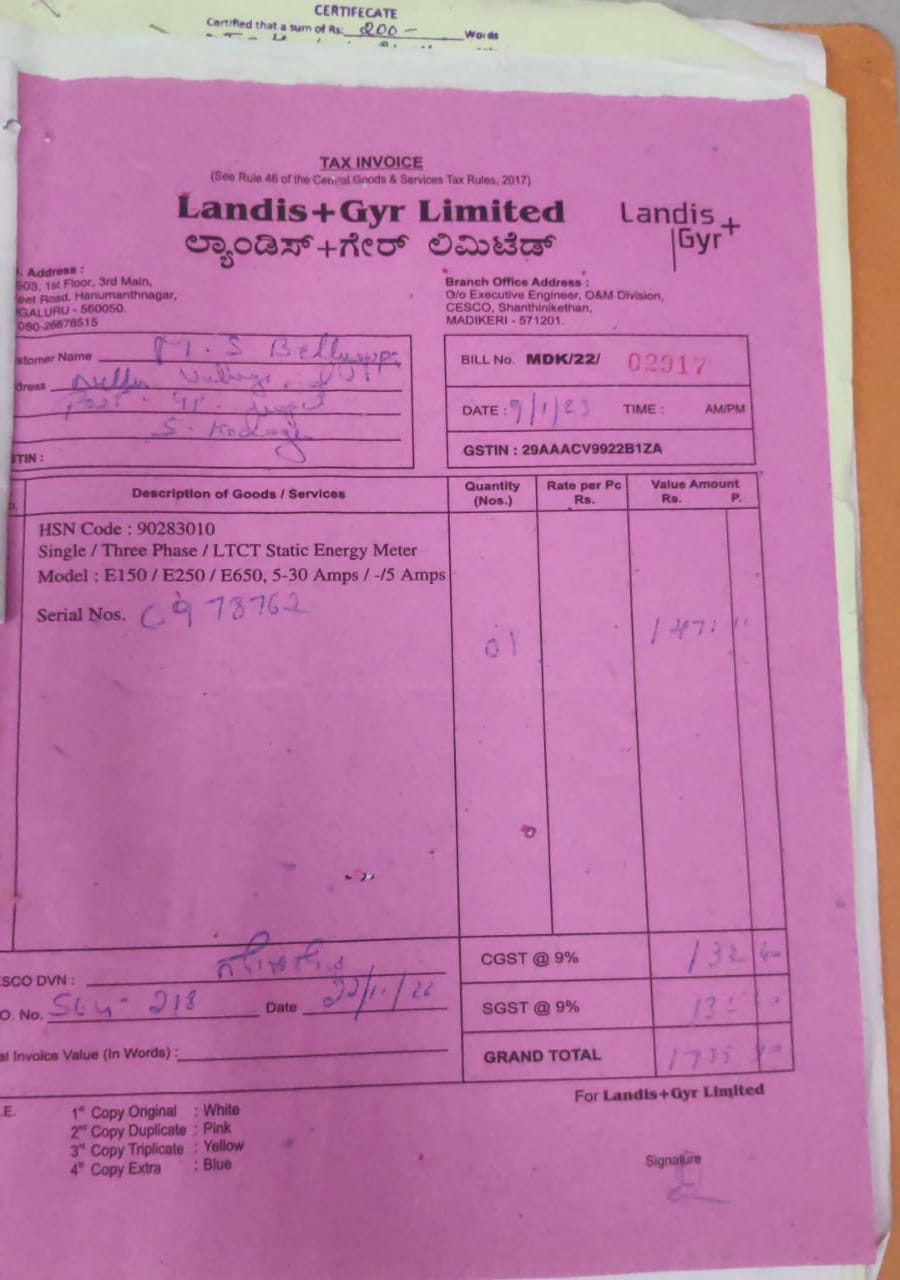 CERTIFECATE
Certified that a sum of Rs: 200 - Words
TAX INVOICE
(See Rule 46 of the Central Goods & Services Tax Rules, 2017)
Landis+Gyr Limited
ಲ್ಯಾಂಡಿಸ್+ಗೇರ್ ಲಿಮಿಟೆಡ್
Landis+
Gyr
. Address :
503, 1st Floor, 3rd Main,
eet Road, Hanumanthnagar,
GALURU - 560050.
080-26678515
Branch Office Address :
O/o Executive Engineer, O&M Division,
CESCO, Shanthinikethan,
MADIKERI - 571201.
stomer Name M. S Belliappa
dress
Post
S. Kodagu
STIN :
BILL No. MDK/22/ 02917
DATE : 9/1/23 TIME : AM/PM
GSTIN : 29AAACV9922B1ZA
Description of Goods / Services
Quantity (Nos.)
Rate per Pc Rs.
Value Amount Rs. P.
HSN Code : 90283010
Single / Three Phase / LTCT Static Energy Meter
Model : E150 / E250 / E650, 5-30 Amps / -/5 Amps
Serial Nos. C978762
01
1471
SCO DVN :
O. No. 218 Date 22/11/22
al Invoice Value (In Words) :
CGST @ 9% 132 40
SGST @ 9% 132
GRAND TOTAL 1735
For Landis+Gyr Limited
.E.
1st Copy Original : White
2nd Copy Duplicate : Pink
3rd Copy Triplicate : Yellow
4th Copy Extra : Blue
Signature